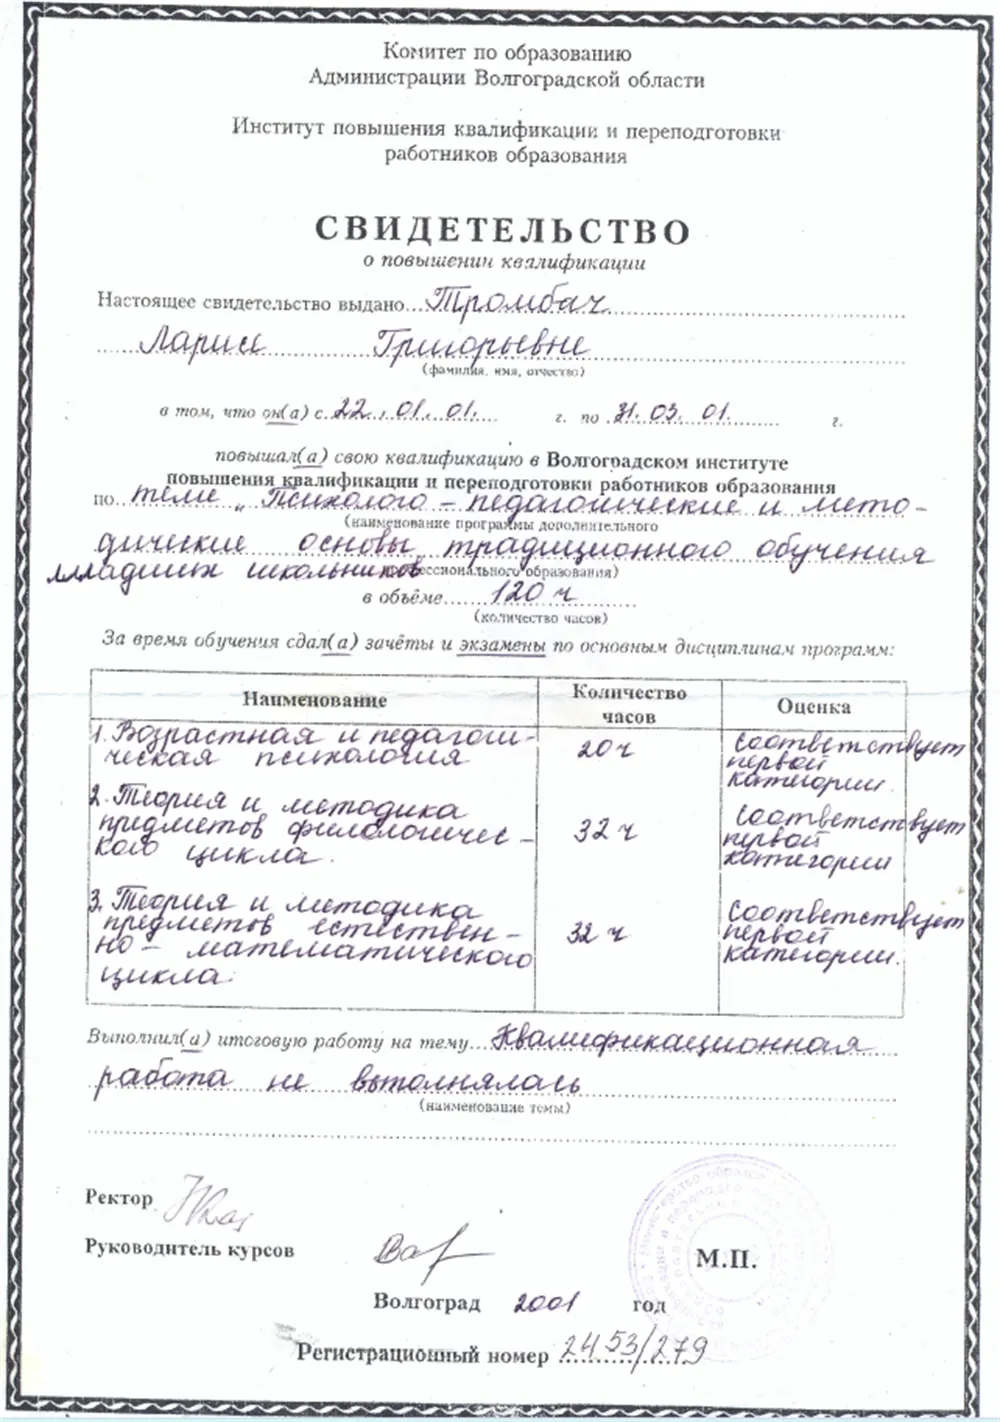 Комитет по образованию
Администрации Волгоградской области
Институт повышения квалификации и переподготовки
работников образования
СВИДЕТЕЛЬСТВО
о повышении квалификации
Настоящее свидетельство выдано Тромбач
Ларисе Григорьевне
(фамилия, имя, отчество)
в том, что он(а) с 22.01.01. г. по 31.03.01. г.
повышал(а) свою квалификацию в Волгоградском институте
повышения квалификации и переподготовки работников образования
по теме „Психолого – педагогические и мето-
(наименование программы дополнительного
дические основы традиционного обучения
младших школьников" профессионального образования)
в объёме 120 ч
(количество часов)
За время обучения сдал(а) зачёты и экзамены по основным дисциплинам программ:
Наименование Количество часов Оценка
1. Возрастная и педагоги- 20 ч Соответствует
ческая психология первой
категории.
2. Теория и методика 32 ч Соответствует
предметов филологичес- первой
кого цикла. категории
3. Теория и методика 32 ч Соответствует
предметов естествен- первой
но - математического категории.
цикла.
Выполнил(а) итоговую работу на тему Квалификационная
работа не выполнялась
(наименование темы)
Ректор
Руководитель курсов
М.П.
Волгоград 2001 год
Регистрационный номер 2453/279